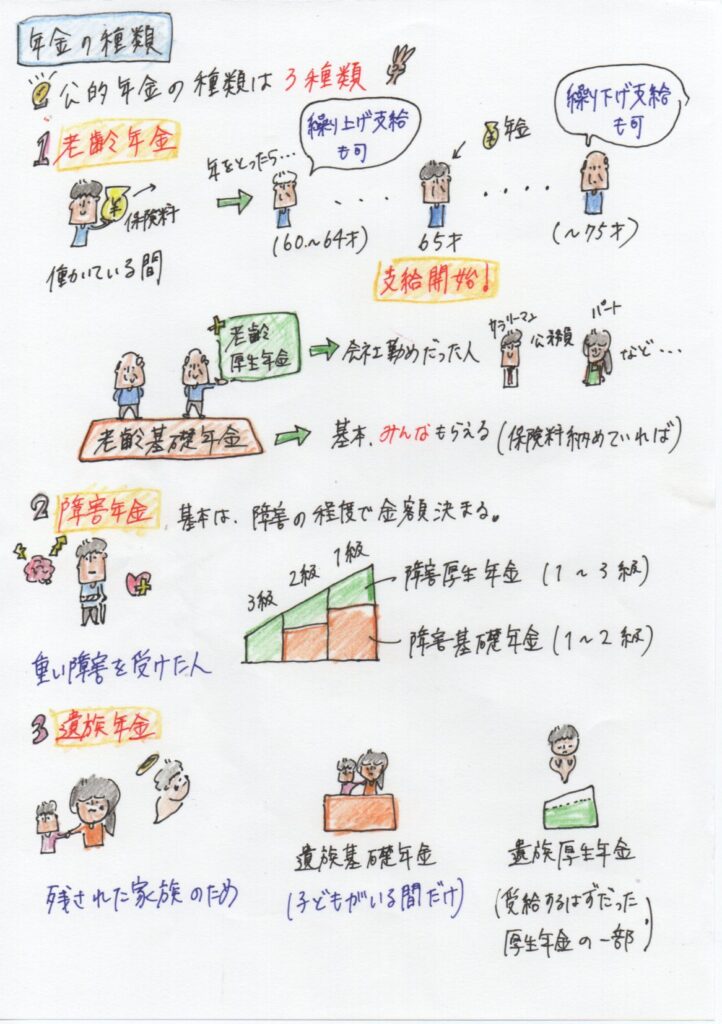 年金の種類
公的年金の種類は3種類
1 老齢年金
¥
保険料
働いている間
年をとったら…
繰り上げ支給
も可
(60~64才)
¥年金
65才
支給開始!
繰り下げ支給
も可
(~75才)
+
老齢
厚生年金
会社勤めだった人
サラリーマン
公務員
パート
など…
老齢基礎年金
基本、みんなもらえる(保険料納めていれば)
2 障害年金 基本は、障害の程度で金額決まる。
重い障害を受けた人
3級
2級
1級
障害厚生年金(1~3級)
障害基礎年金(1~2級)
3 遺族年金
残された家族のため
遺族基礎年金
(子どもがいる間だけ)
遺族厚生年金
(受給するはずだった
厚生年金の一部)